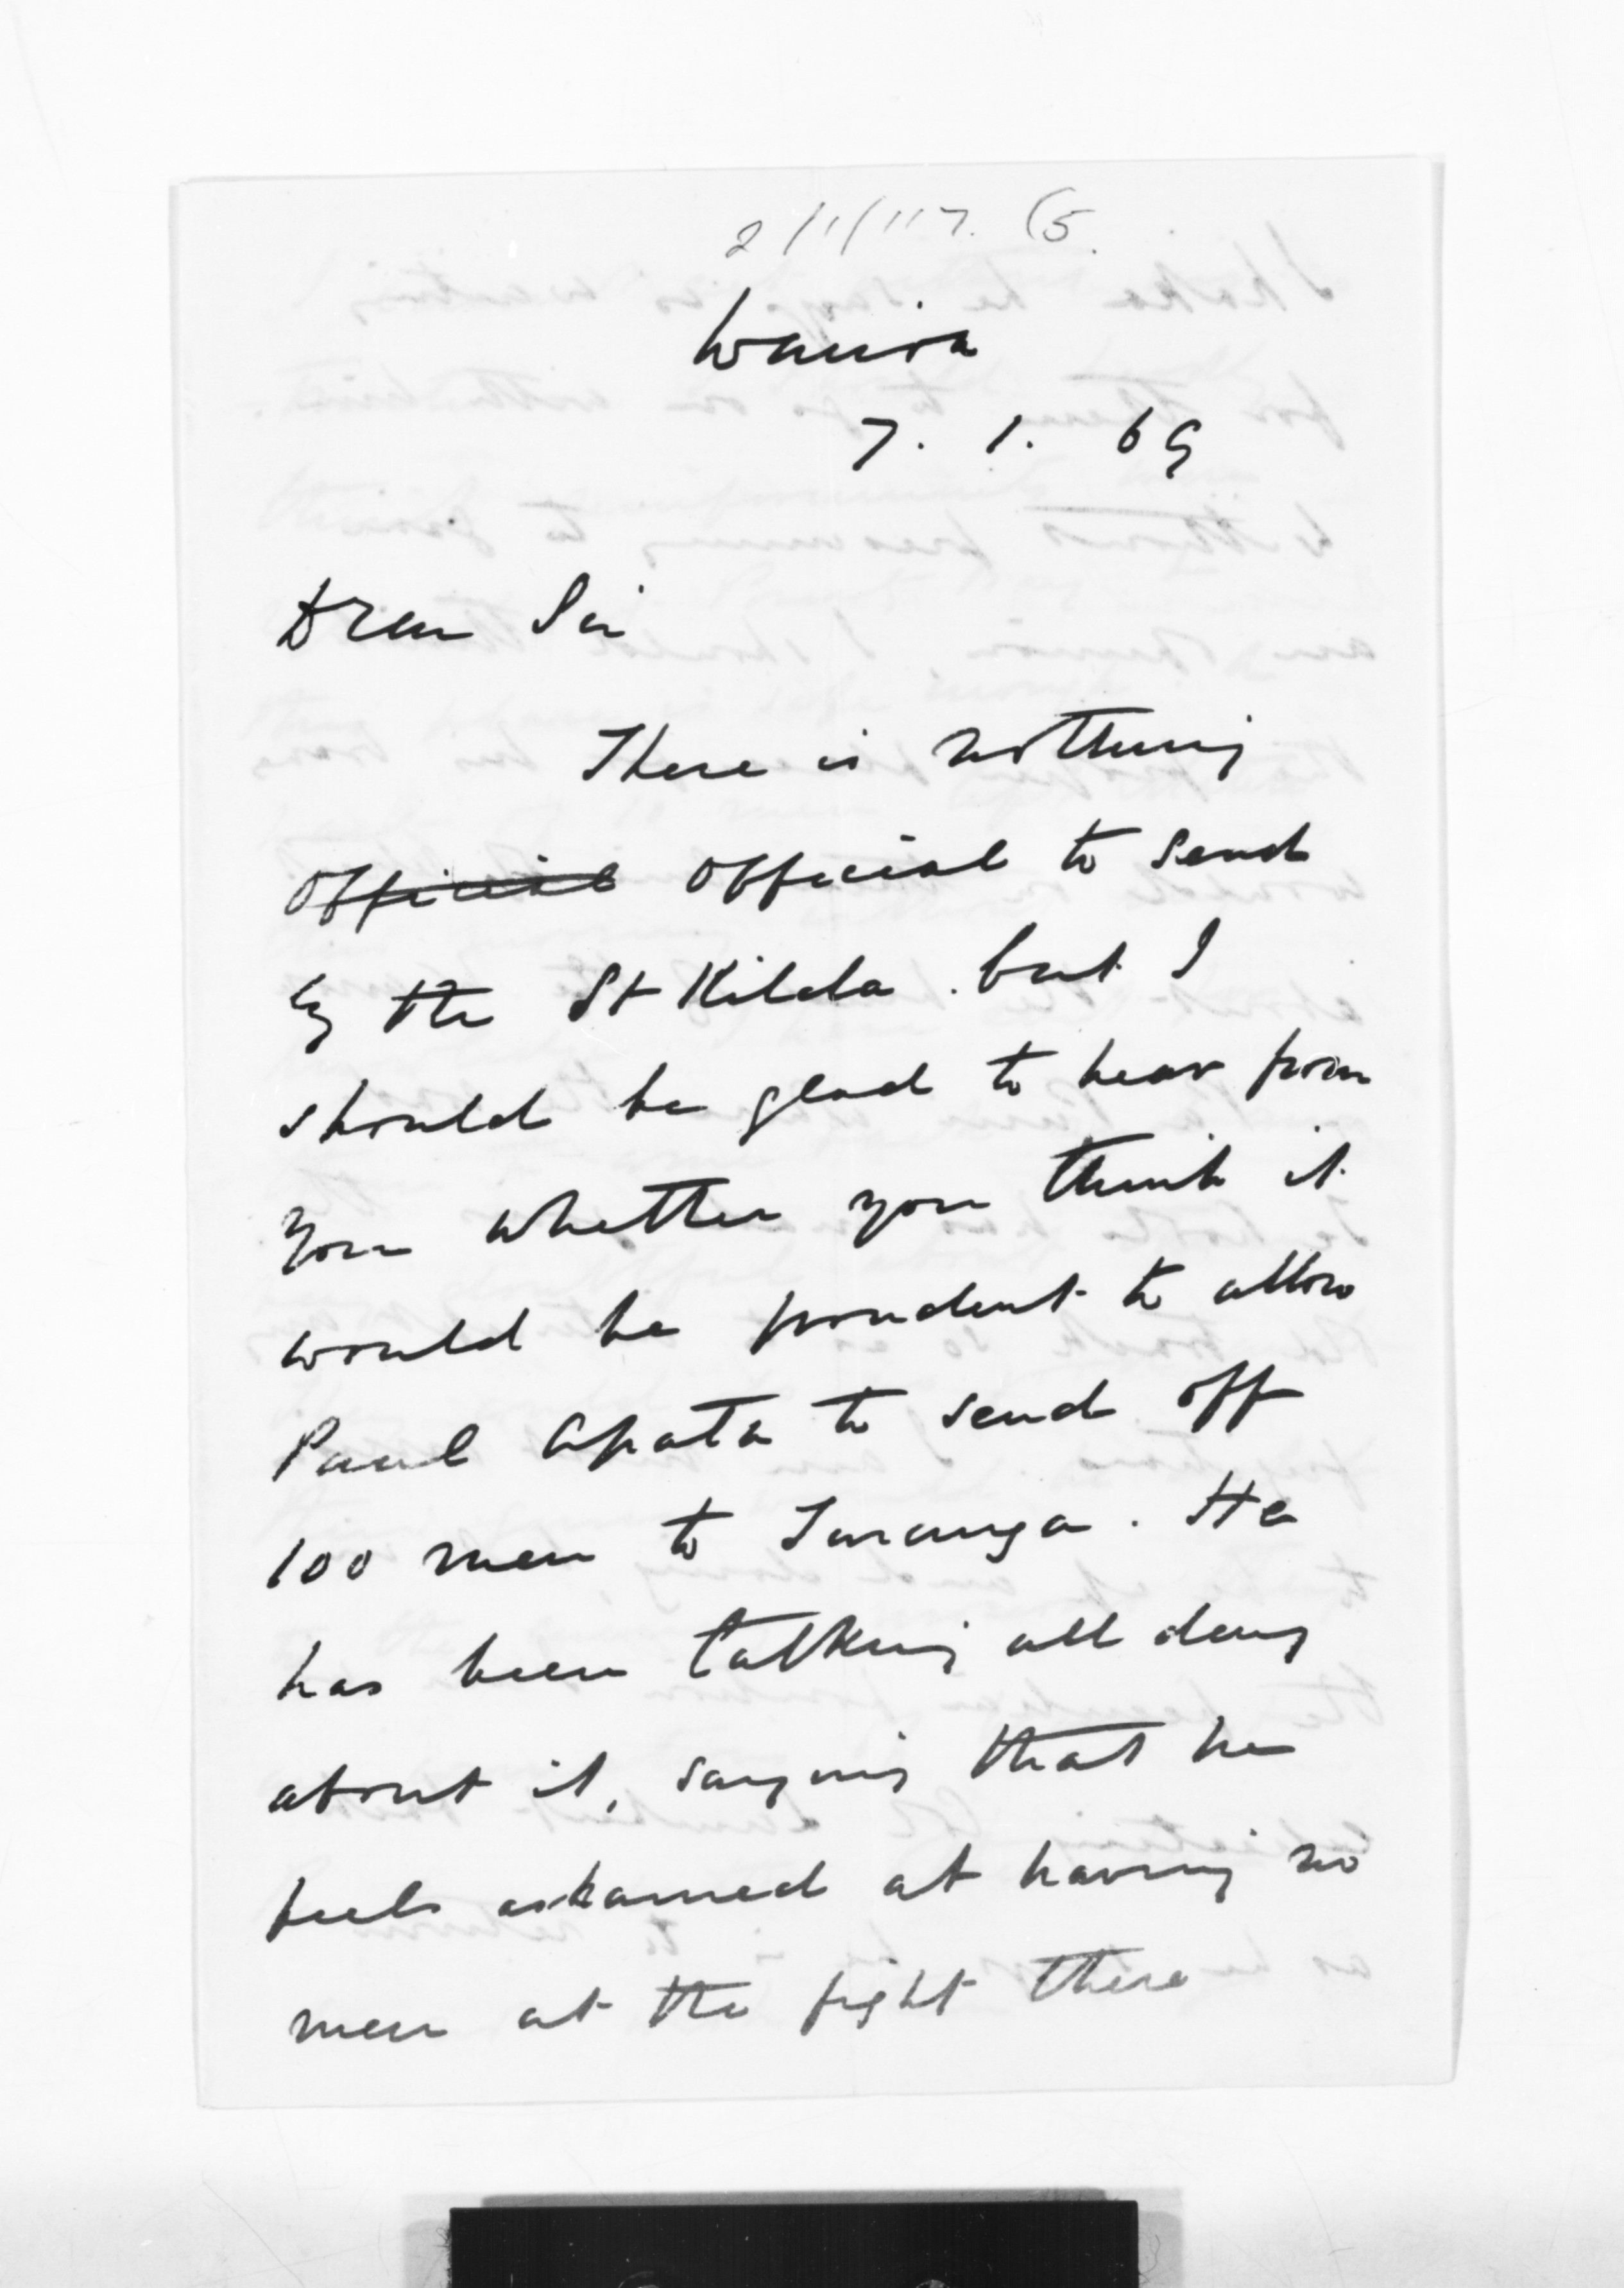 2/1/117. (5.
Wairoa
7. 1. 69
Dear Sir
There is nothing
Official Official to send
by the St Kilda. but I
should be glad to hear from
you whether you think it
would be prudent to allow
Paul Apata to send off
100 men to Turanga. He
has been talking all day
about it, saying that he
feels ashamed at having no
men at the fight there